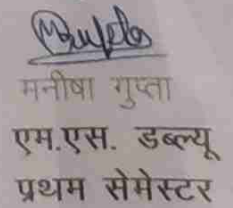 मनीषा गुप्ता
एम.एस. डब्ल्यू
प्रथम सेमेस्टर